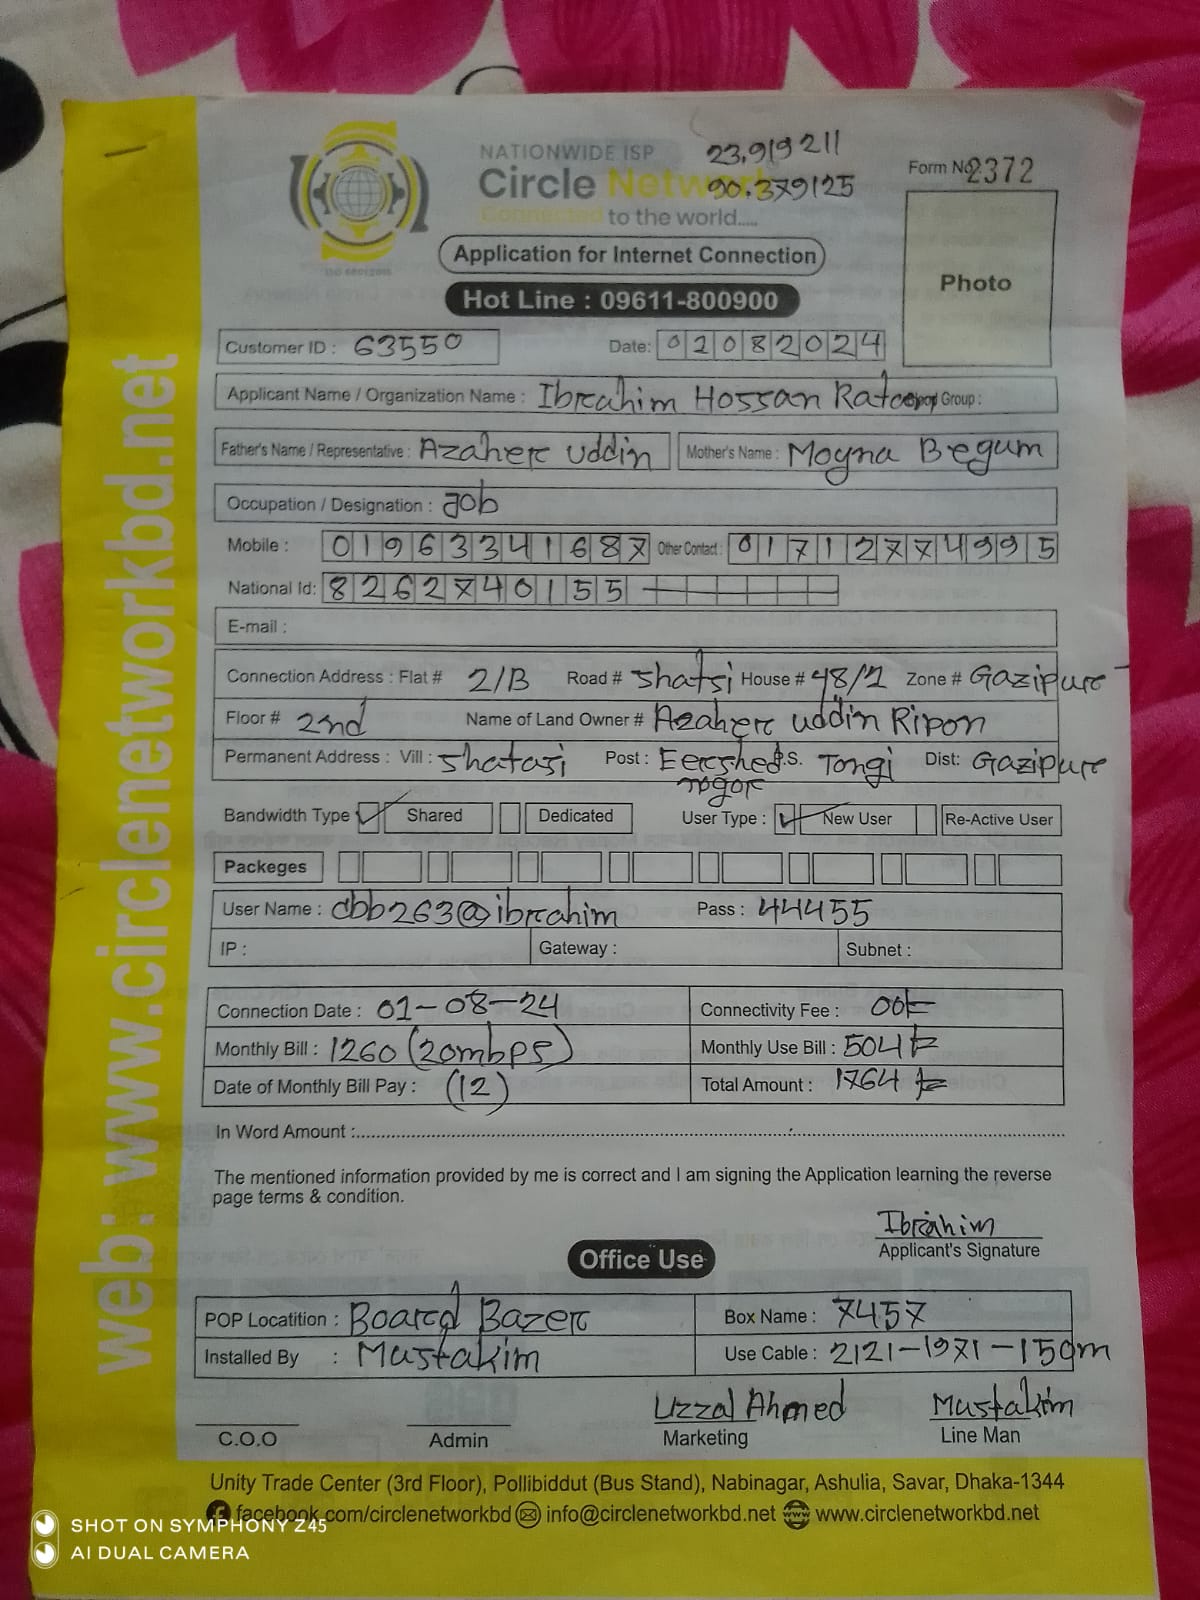 NATIONWIDE ISP
23.919211
Circle Network
90.379125
Connected to the world.....
Form No 2372
Application for Internet Connection
Photo
Hot Line : 09611-800900
Customer ID : 63550 Date: 02082024
Applicant Name / Organization Name : Ibrahim Hossan Group :
Father's Name / Representative : Azaher uddin Mother's Name : Moyna Begum
Occupation / Designation : Job
Mobile : 01963341687 Other Contact : 01712774995
National Id: 8262740155
E-mail :
Connection Address : Flat # 2/B Road # Shatsi House # 48/1 Zone # Gazipur
Floor # 2nd Name of Land Owner # Azaher uddin Ripon
Permanent Address : Vill : Shatasi Post : Eershed P.S. Tongi Dist: Gazipur
nogor
Bandwidth Type Shared Dedicated User Type : New User Re-Active User
Packeges
User Name : cbb263@ibrahim Pass : 44455
IP : Gateway : Subnet :
Connection Date : 01-08-24 Connectivity Fee : 00/=
Monthly Bill : 1260 (20mbps) Monthly Use Bill : 504 tk
Date of Monthly Bill Pay : (12) Total Amount : 1764 tk
In Word Amount :
The mentioned information provided by me is correct and I am signing the Application learning the reverse
page terms & condition.
Ibrahim
Applicant's Signature
Office Use
POP Locatition : Board Bazer Box Name : 7457
Installed By : Mustakim Use Cable : 2121-1971-150m
Uzzal Ahmed Mustakim
C.O.O Admin Marketing Line Man
Unity Trade Center (3rd Floor), Pollibiddut (Bus Stand), Nabinagar, Ashulia, Savar, Dhaka-1344
facebook.com/circlenetworkbd info@circlenetworkbd.net www.circlenetworkbd.net
web: www.circlenetworkbd.net
SHOT ON SYMPHONY Z45
AI DUAL CAMERA